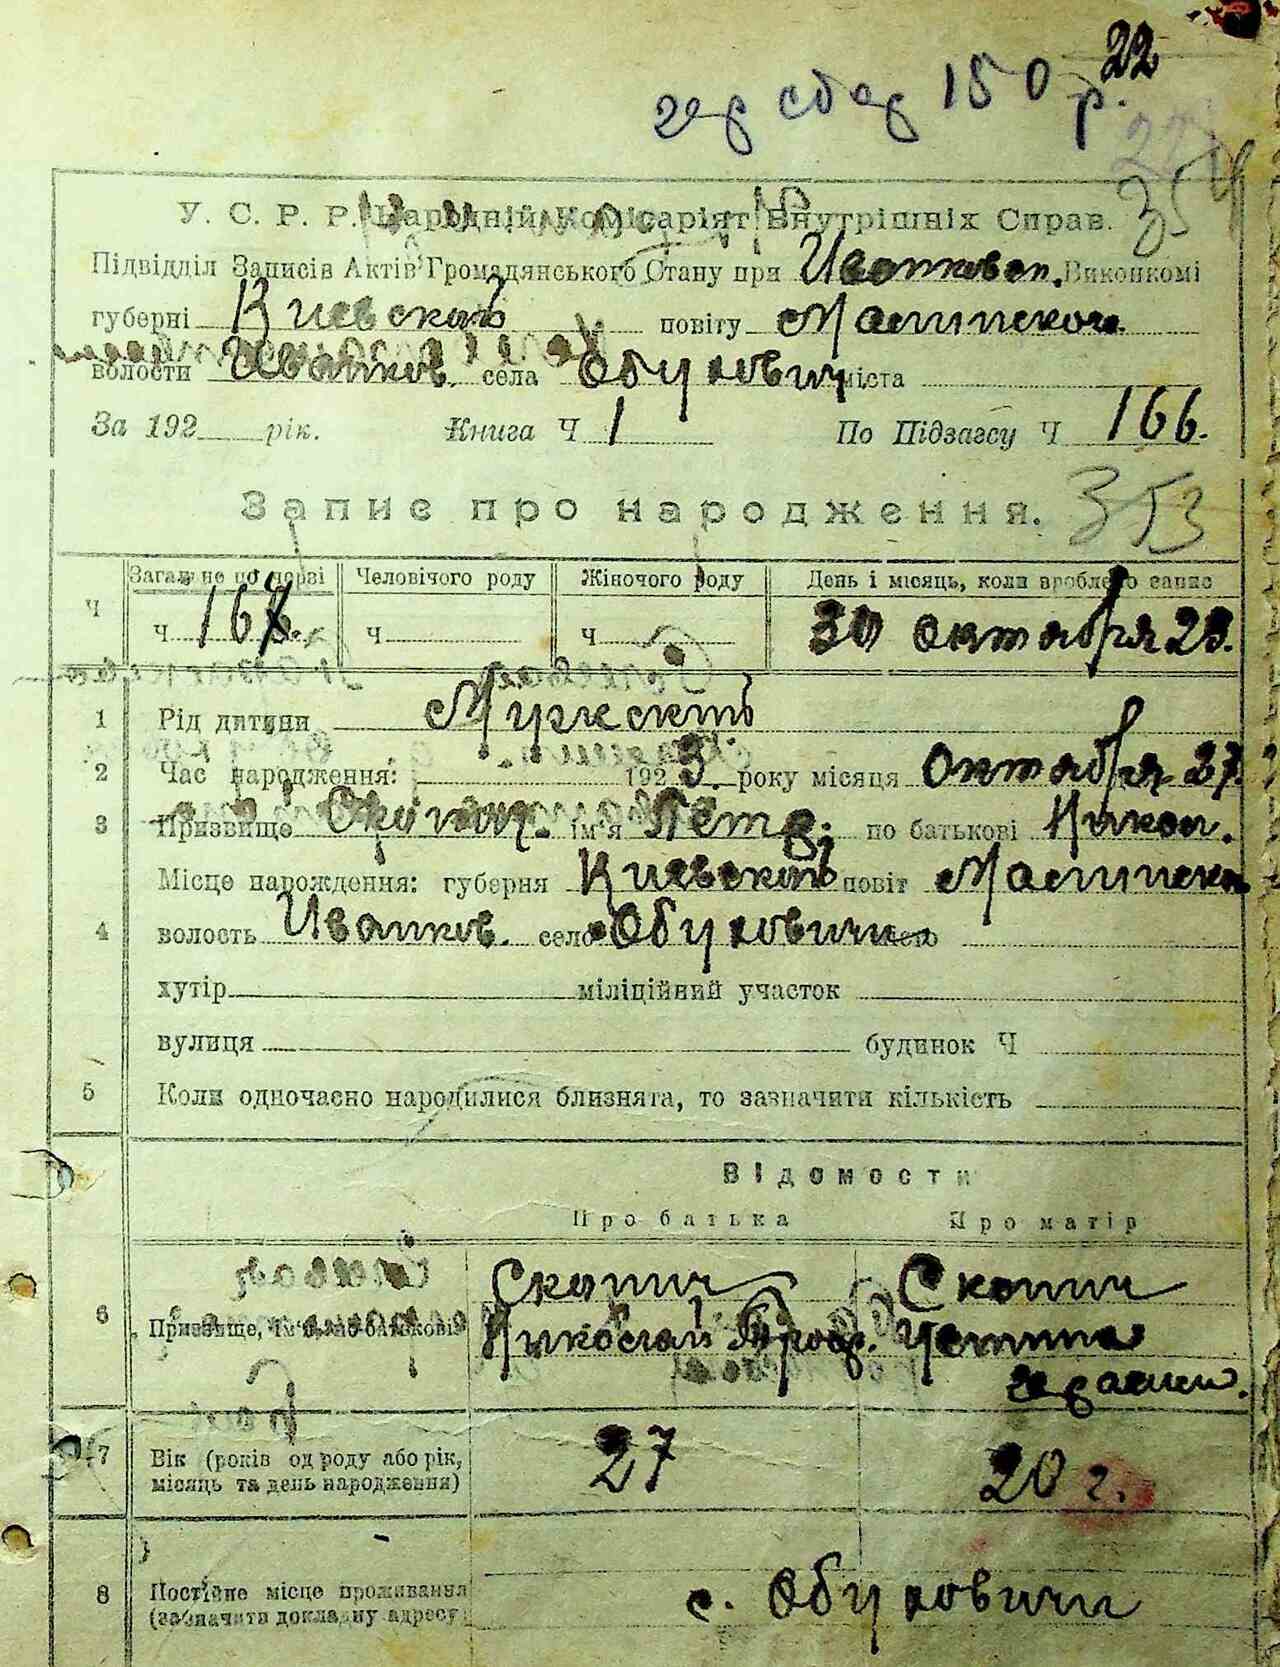 22
гер сбор 150 р.
354
У. С. Р. Р. Народній Комісаріят Внутрішніх Справ.
Підвідділ Записів Актів Громадянського Стану при Иванковск. Виконкомі
губерні Киевской повіту Малинского
волости Иванков. села Обуховичи міста
За 192 рік. Книга Ч 1 По Підзагсу Ч 166.
Запис про народження. 353
Загальне по черзі Человічого роду Жіночого роду День і місяць, коли вроблено запис
Ч Ч 167. Ч Ч 30 октября 23.
1 Рід дитини Мужской
2 Час народження: 1923. року місяця октября 27.
3 Призвище Скопич. ім'я Петр. по батькові Никол.
Місце нарождення: губерня Киевской повіт Малинско
4 волость Иванков. село Обуховичи місто
хутір міліційний участок
вулиця будинок Ч
5 Коли одночасно народилися близнята, то зазначити кількість
Відомости
Про батька Про матір
Скопич Скопич
6 Призвище, ім'я по батькові Николай Троф. Устина
Герасим.
7 Вік (років од роду або рік, 27 20 г.
місяць та день народження)
8 Постійне місце проживання с. Обуховичи
(зазначити докладну адресу)